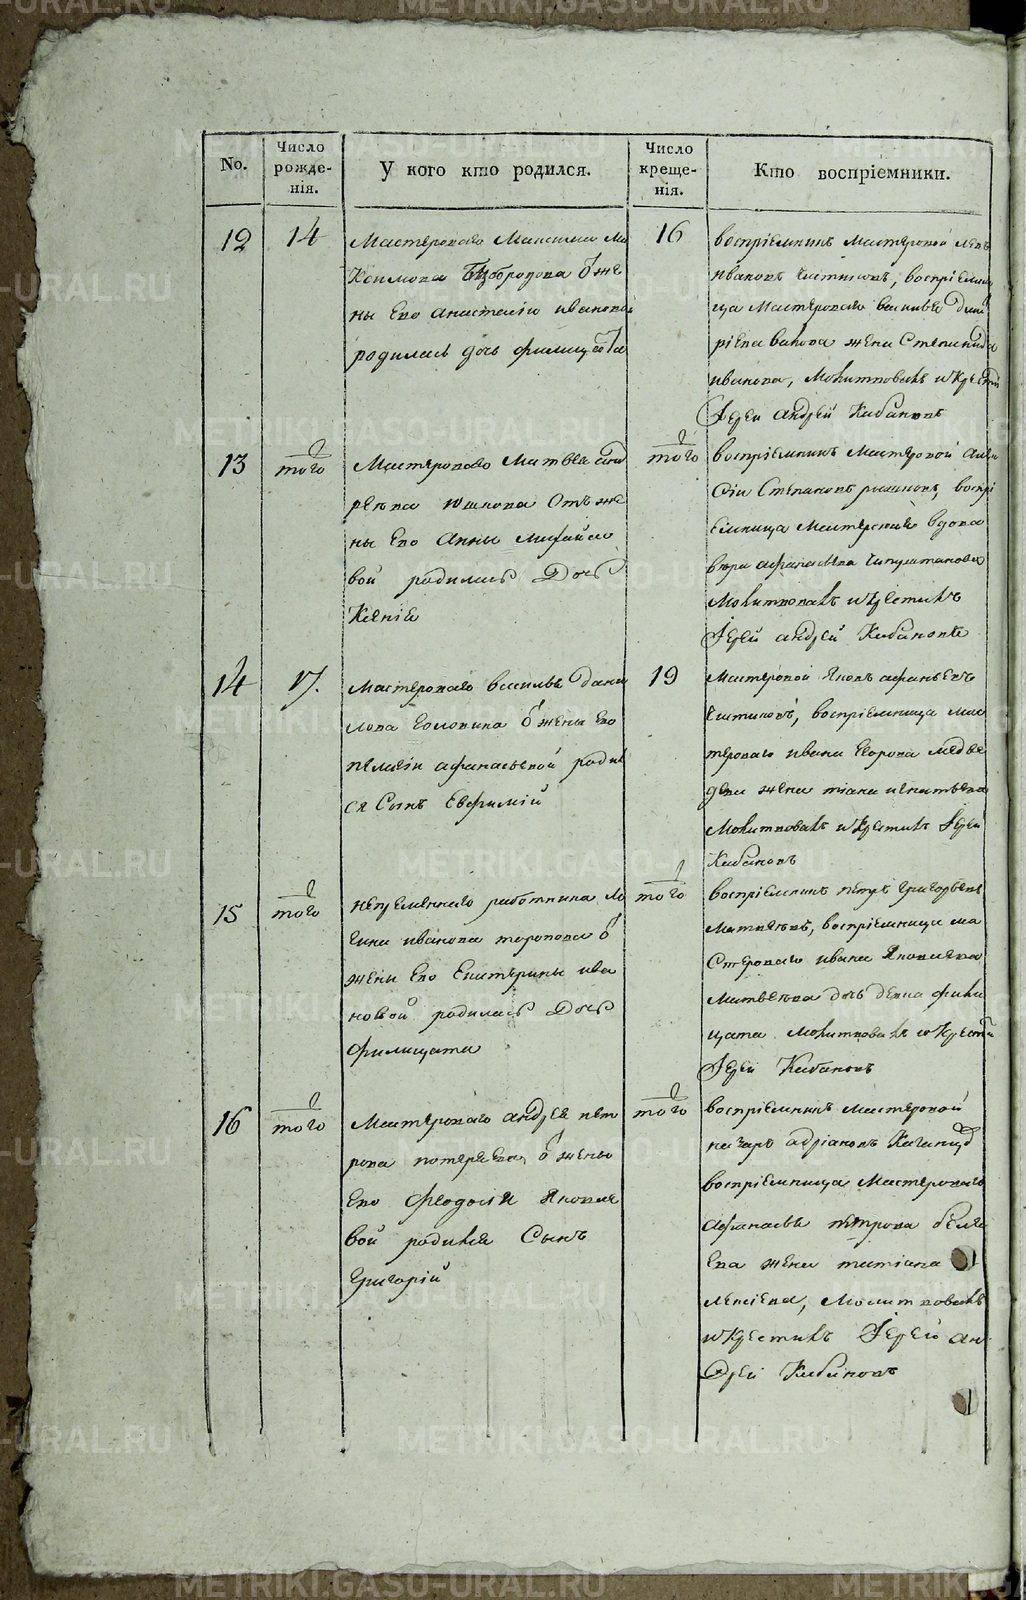 No.
Число рожде-нія.
У кого кто родился.
Число креще-нія.
Кто воспріемники.
12
14
Мастероваго Максима Ма
ксимова Бобродова ѿ же
ны его Анастасіи Иванов
родилась дочь Филицата
16
воспріемникъ мастеровой
Ивановъ воспріемни
ца мастероваго Василья Дми
ріева жена Степанида
Иванова, молитвовалъ и крест
Іерей Андрей Кабаковъ
13
того
Мастероваго Матвея Анд
реева Юшкова отъ же
ны его Анны Михайло
вой родилась дочь
Ксенія
того
воспріемникъ мастеровой
Степановъ воспрі
емница мастерская вдова
Вера Афанасьева
молитвовалъ и крестилъ
Іерей Андрей Кабаковъ
14
17.
Мастероваго Василья Дани
лова Головина ѿ жены его
Пелагіи Афанасьевой родил
ся сынъ Евфимій
19
мастеровой Яковъ Афанасьевъ
воспріемница мас
тероваго Ивана Егорова Медве
дева жена
молитвовалъ и крестилъ Іерей
Кабаковъ
15
того
непременнаго работника Ло
гина Иванова Торопова ѿ
жены его Екатерины Ива
новой родилась дочь
Филицата
того
воспріемникъ Петръ Григорьевъ
Матвеевъ, воспріемница ма
стероваго Ивана Яковлева
Матвеева дочь девка Фили
цата молитвовалъ и крести
Іерей Кабаковъ
16
того
Мастероваго Андрея Пет
рова Потеряева, ѿ жены
его Феодосіи Яковле
вой родился сынъ
Григорій
того
воспріемникъ мастеровой
Назаръ Адріановъ
воспріемница мастероваго
Афанасья Петрова Беля
ева жена Татіана
молитвовалъ
и крестилъ Іерей Ан
дрей Кабаковъ